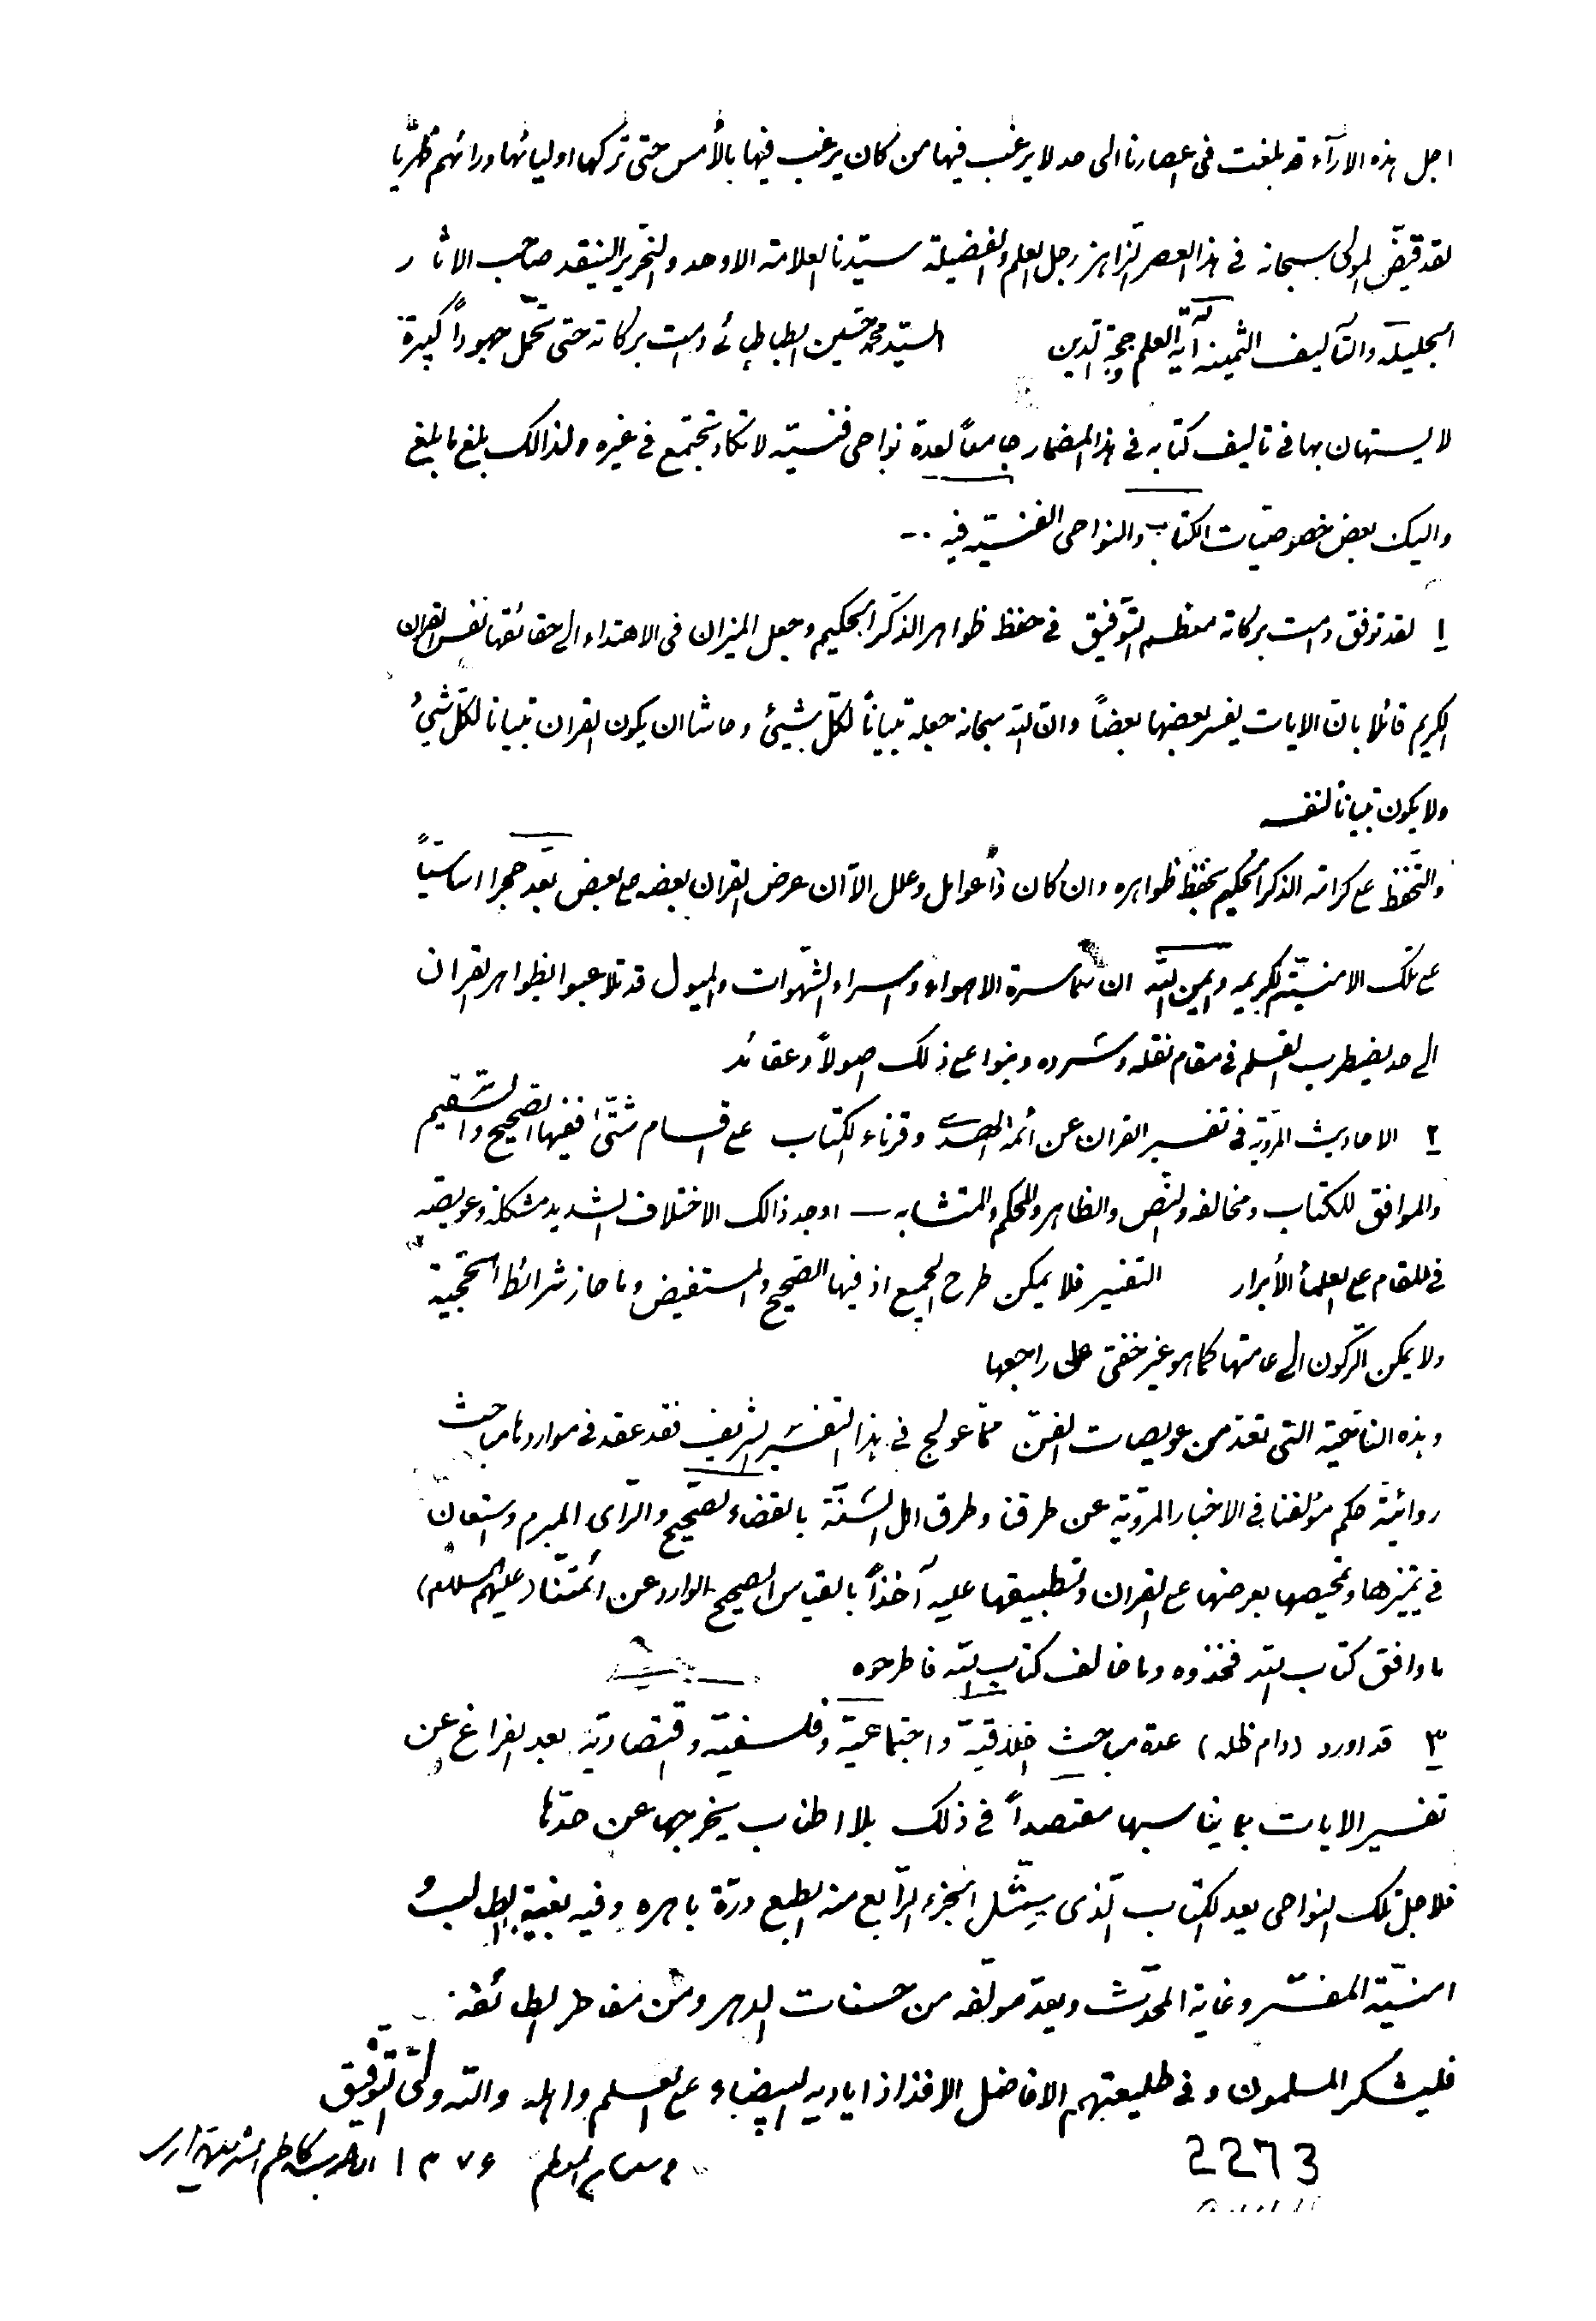 اجل هذه الاراء قد بلغت فى اعصارنا الى حد لا يرغب فيها من كان يرغب فيها بالأمس حتى تركها اوليائها ورائهم ظهريّا
لقد قيّض المولى سبحانه فى هذا العصر الزاهر رجل العلم والفضيلة سيّدنا العلامة الاوحد والنحرير النيقد صاحب الاثار
الجليلة والتآليف الثمينه آية العلم وحجة الدين السيّد محمد حسين الطباطبائى دامت بركاته حتى تحمّل جهوداً كبيرة
لا يستهان بها فى تاليف كتابه فى هذا المضمار جامعاً لعدة نواحى فنسيّه لا تكاد تجتمع فى غيره ولذالك بلغ ما بلغ
واليك بعض خصوصيّات الكتاب والنواحى الفنيّه فيه
١ لقد توفق دامت بركاته معظم التوفيق فى حفظ ظواهر الذكر الحكيم وجعل الميزان فى الاهتداء الى حقائقها نفس القران
الكريم قائلا بانّ الايات يفسر بعضها بعضاً وانّ الله سبحانه جعله تبياناً لكلّ شيئ وحاشا ان يكون القران تبيانا لكلّ شيئ
ولا يكون تبياناً لنفسه
والتحفّظ على كرامة الذكر الحكيم بحفظ ظواهره وان كان ذا عوامل وعلل الاّ ان عرض القران بعضه على بعض يعدّ حجرا اساسيّاً
على تلك الامنيّة الكريمه وايمن الله ان سماسرة الاهواء واسراء الشهوات والميول قد تلاعبوا بظواهر القران
الى حد يضطرب القلم فى مقام نقله وسرده وبنوا على ذلك اصولاً وعقائد
٢ الاحاديث المرويّة فى تفسير القران عن ائمة الهدى وقرناء الكتاب على اقسام شتّى ففيها الصحيح والسّقيم
والموافق للكتاب ومخالفه والنّص والظاهر والمحكم والمتشابه – اوجد ذالك الاختلاف الشديد مشكلة وعويصه
فى المقام على العلماء الأبرار التفسير فلا يمكن طرح الجميع اذ فيها الصّحيح والمستفيض وما حاز شرائط الحّجية
ولا يمكن الرّكون الى عامتها كما هو غير خفىّ على راجعها
وهذه الناحية التى تعدّ من عويصات الفنّ ممّا عولج فى هذا التفسير الشريف فقد عقد فى مواردها مباحث
روائيّة حكم مؤلفنا فى الاخبار المرويّة عن طرقنا وطرق اهل السّنّة بالقضاء الصّحيح والرّاى المبرم واستعان
فى تميزها وتمحيصها بعرضها على القران وتطبيقها عليه آخذاً بالقياس الصحيح الوارد عن ائمتنّا (عليهم السلام)
ما وافق كتاب الله فخذوه وما خالف كتاب الله فاطرحوه
٣ قد اورد (دام ظله) عدة مباحث اخلاقيّة واجتماعيّة وفلسفيّه واقتصاديّه بعد الفراغ عن
تفسير الايات بما يناسبها مقتصداً فى ذلك بلا اطناب يخرجها عن حدّها
فلاجل تلك النواحى يعد الكتاب الّذى سيمّثل الجزء الرّابع منه الطبع درّة باهره وفيه بغية الطالب و
امنيّة المفسّر وغاية المحدّث ويعدّ مؤلّفه من حسنات الدهر ومن مفاخر الطائفة
فليشكر المسلمون وفى طليعتهم الافاضل الافذاذ اياديه البيضاء على العلم واهله والله ولىّ التوفيق
2273
١٣٧٦